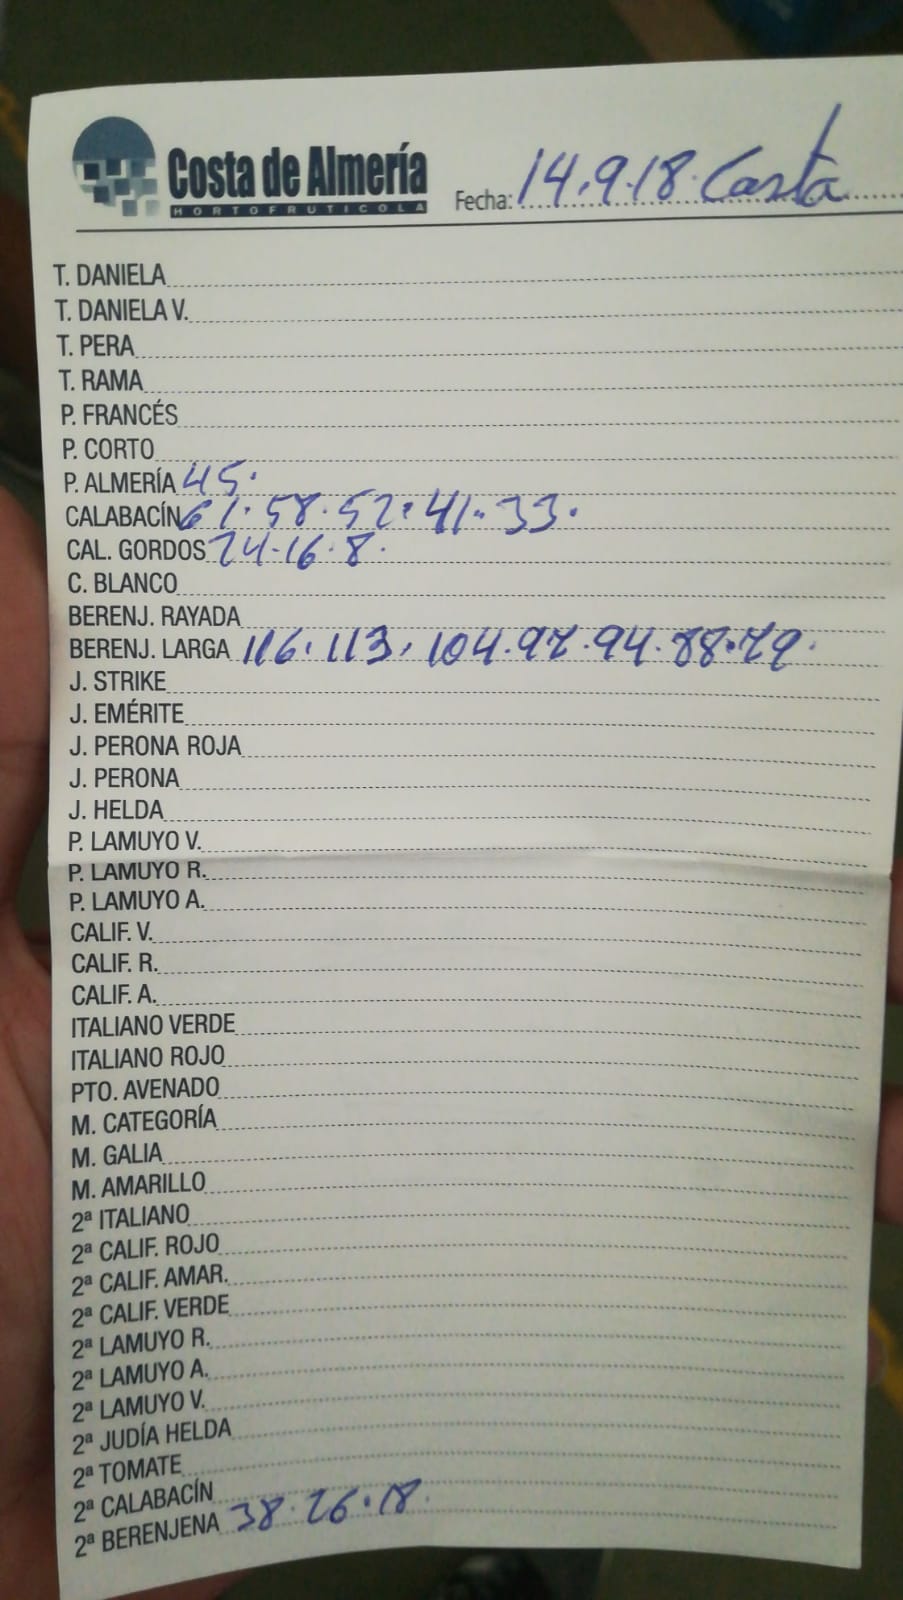 Costa de Almería
HORTOFRUTICOLA
Fecha: 14.9.18. Costa
T. DANIELA
T. DANIELA V.
T. PERA
T. RAMA
P. FRANCÉS
P. CORTO
P. ALMERÍA 45.
CALABACÍN 61. 58. 52. 41. 33.
CAL. GORDOS 24-16.8.
C. BLANCO
BERENJ. RAYADA
BERENJ. LARGA 116. 113. 104.97.94.88.79.
J. STRIKE
J. EMÉRITE
J. PERONA ROJA
J. PERONA
J. HELDA
P. LAMUYO V.
P. LAMUYO R.
P. LAMUYO A.
CALIF. V.
CALIF. R.
CALIF. A.
ITALIANO VERDE
ITALIANO ROJO
PTO. AVENADO
M. CATEGORÍA
M. GALIA
M. AMARILLO
2ª ITALIANO
2ª CALIF. ROJO
2ª CALIF. AMAR.
2ª CALIF. VERDE
2ª LAMUYO R.
2ª LAMUYO A.
2ª LAMUYO V.
2ª JUDÍA HELDA
2ª TOMATE
2ª CALABACÍN
2ª BERENJENA 38. 26.18.